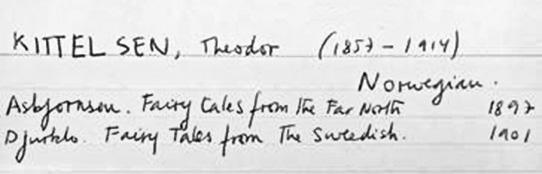 KITTELSEN, Theodor (1857 - 1914)
Norwegian.
Asbjornsen. Fairy tales from the Far North 1897
Djurklo. Fairy Tales from The Swedish. 1901